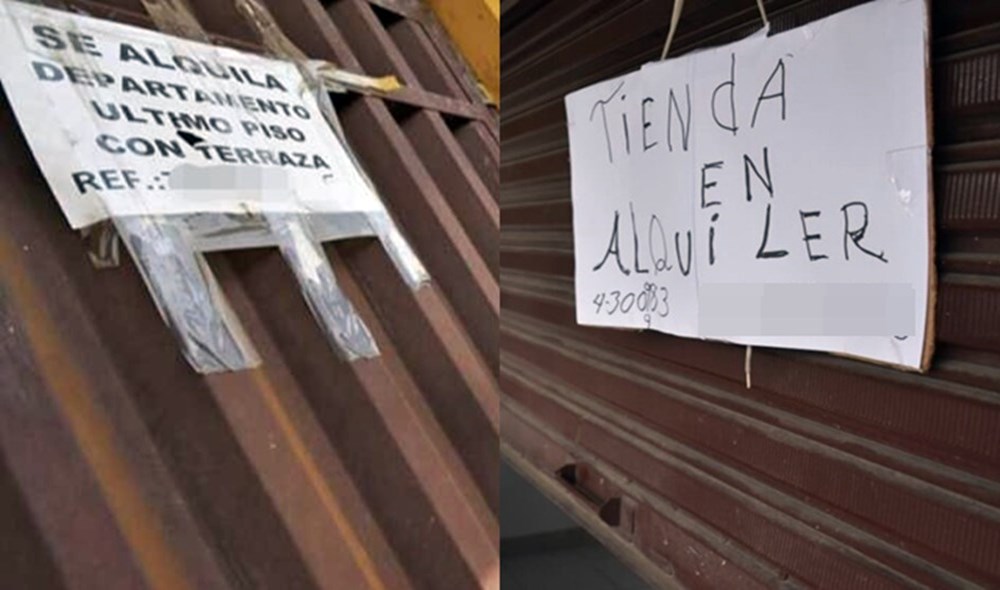 SE ALQUILA
DEPARTAMENTO
ULTIMO PISO
CON TERRAZA
REF.:
TIENdA
EN
ALQUiLER